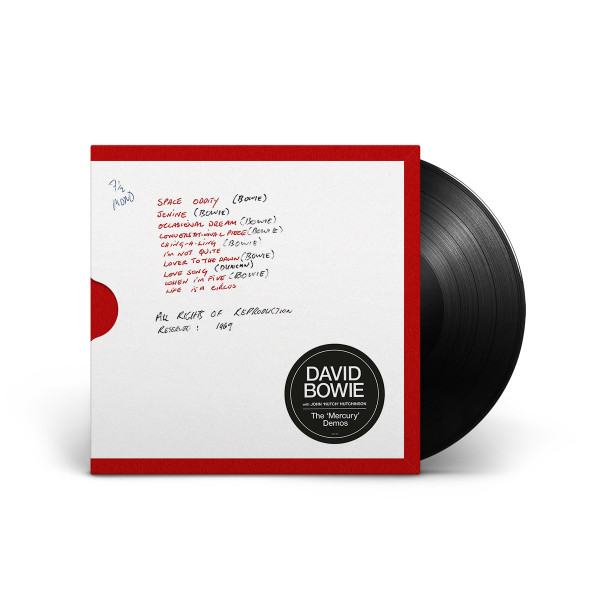 7½
MONO
SPACE ODDITY (BOWIE)
JANINE (BOWIE)
OCCASIONAL DREAM (BOWIE)
CONVERSATIONAL PIECE (BOWIE)
CHING-A-LING (BOWIE)
I'M NOT QUITE
LOVER TO THE DAWN (BOWIE)
LOVE SONG (DUNCAN)
WHEN I'M FIVE (BOWIE)
LIFE IS A CIRCUS
ALL RIGHTS OF REPRODUCTION
RESERVED: 1969
DAVID
BOWIE
with JOHN 'HUTCH' HUTCHINSON
The 'Mercury'
Demos